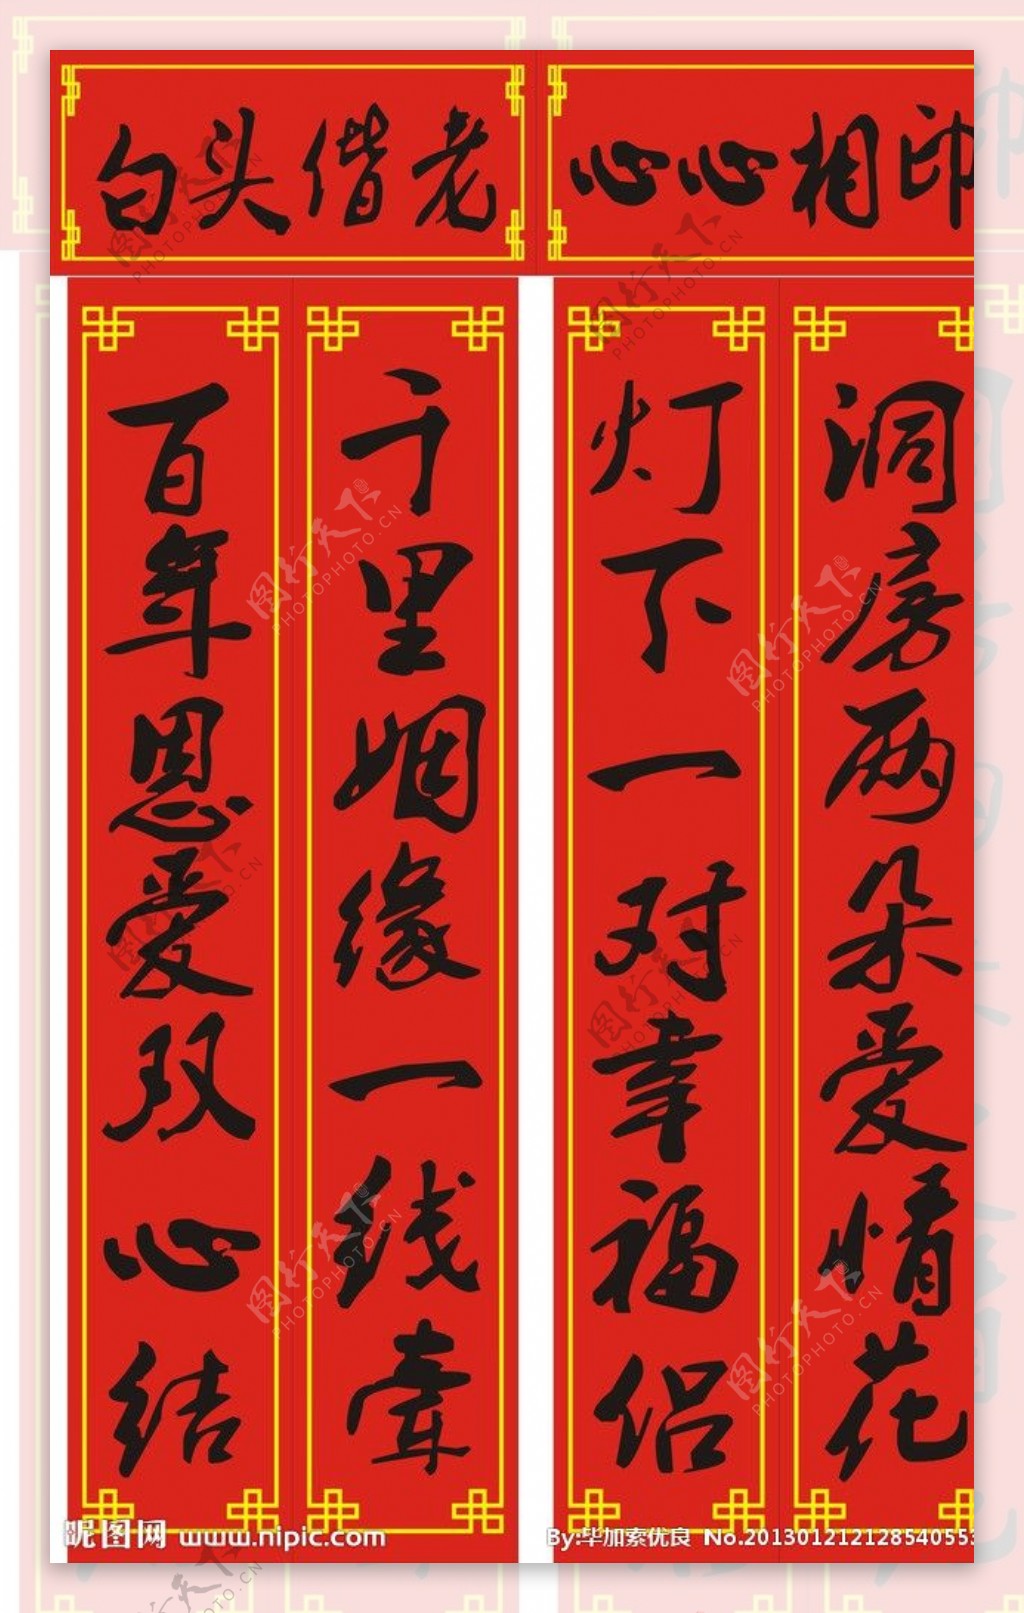 白头偕老
心心相印
百年恩爱双心结
千里姻缘一线牵
灯下一对幸福侣
洞房两朵爱情花
昵图网 www.nipic.com
By:毕加索优良 No.201301212128540553
图行天下
PHOTOPHOTO.CN